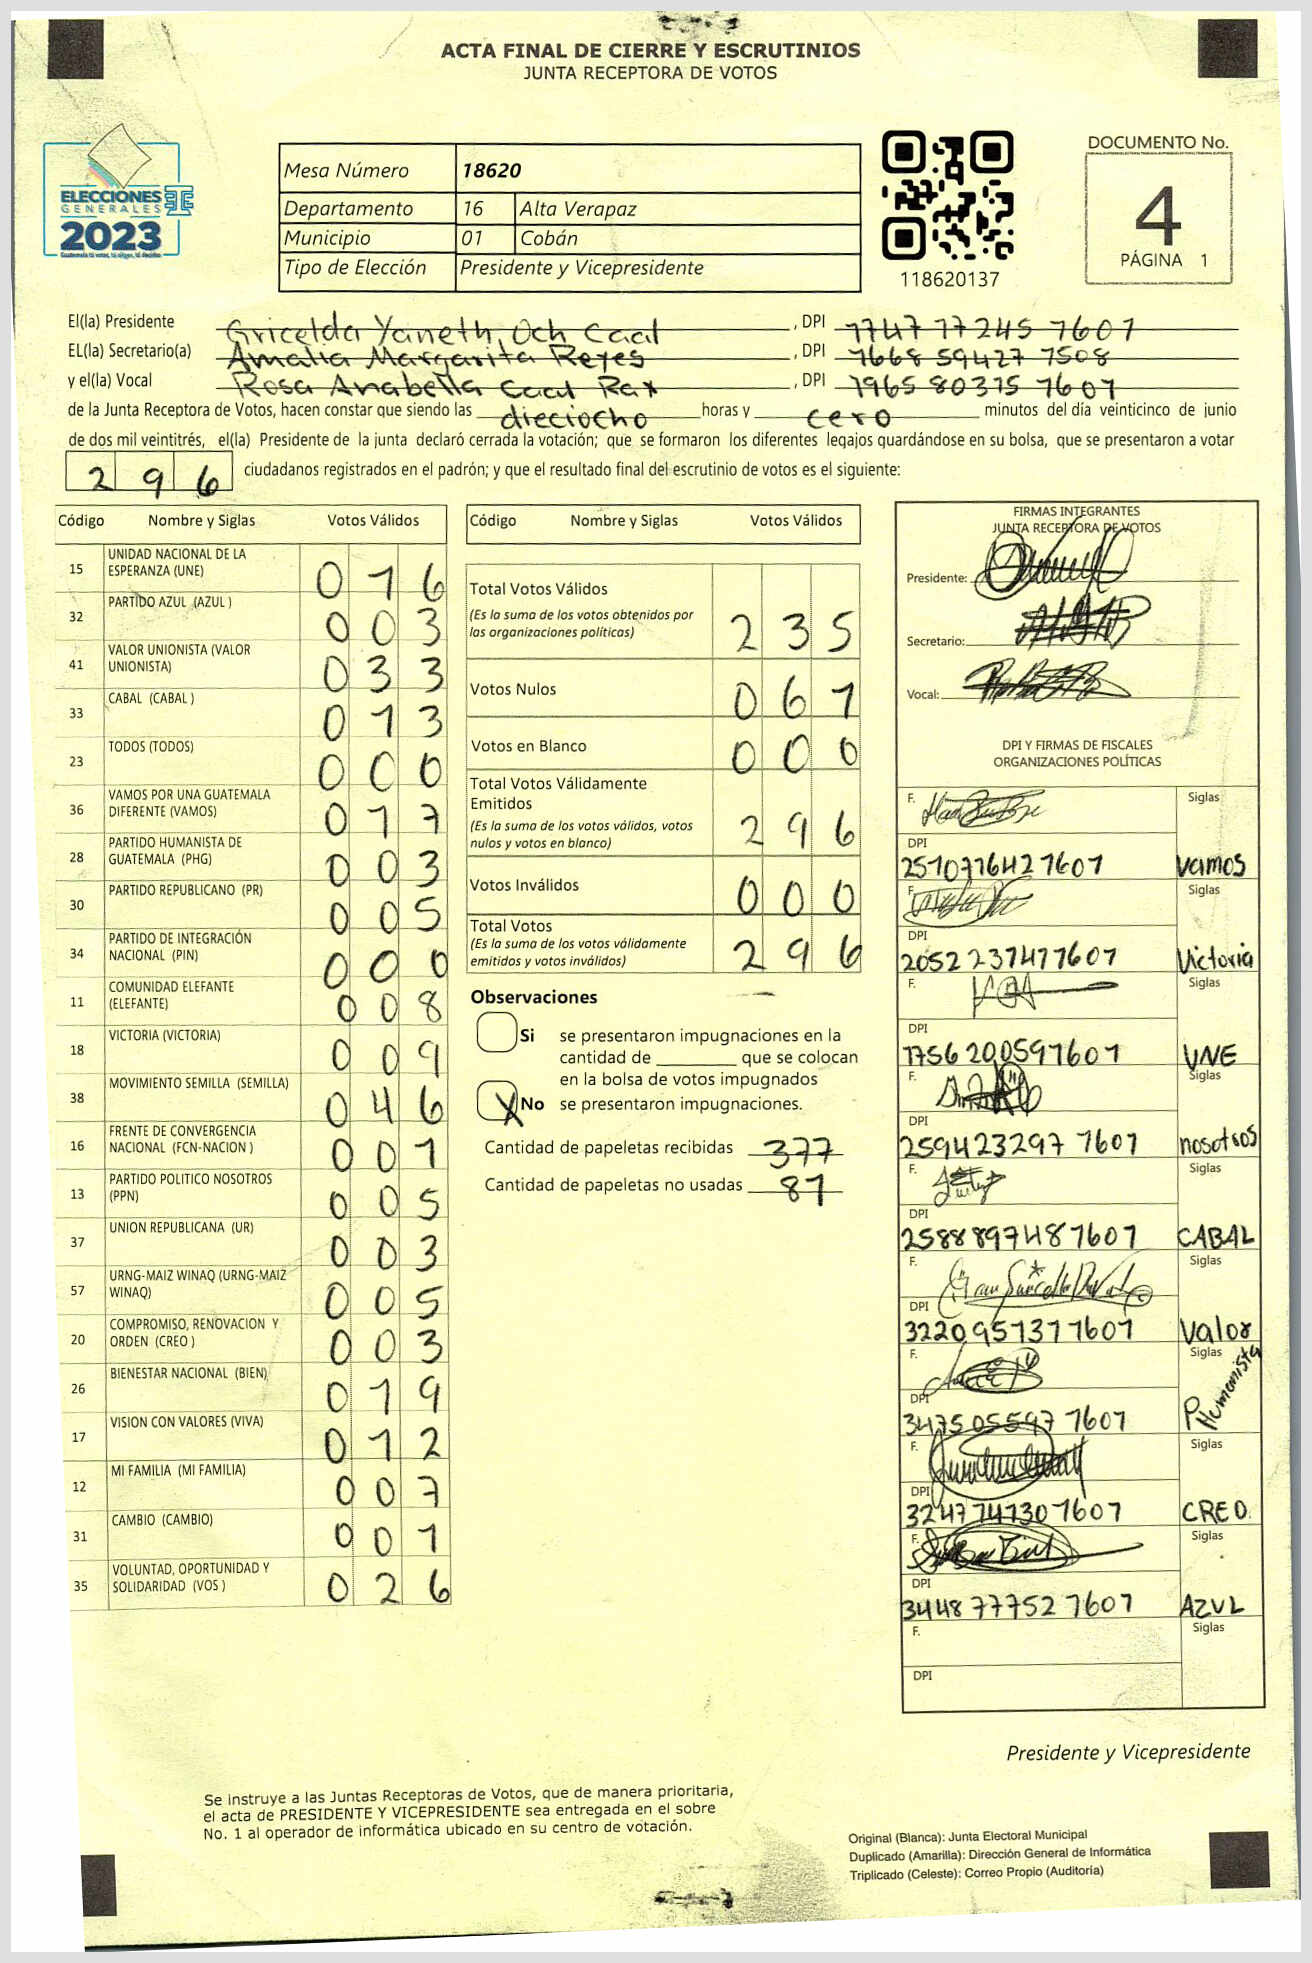 ACTA FINAL DE CIERRE Y ESCRUTINIOS
JUNTA RECEPTORA DE VOTOS
ELECCIONES
GENERALES
2023
Mesa Número 18620
Departamento 16 Alta Verapaz
Municipio 01 Cobán
Tipo de Elección Presidente y Vicepresidente
118620137
DOCUMENTO No.
4
PÁGINA 1
El(la) Presidente Gricelda Yaneth Och Caal , DPI 1747 77245 1607
EL(la) Secretario(a) Amalia Margarita Reyes , DPI 1668 59427 1508
y el(la) Vocal Rosa Anabella Caal Rax , DPI 1965 80375 1607
de la Junta Receptora de Votos, hacen constar que siendo las dieciocho horas y cero minutos del día veinticinco de junio
de dos mil veintitrés, el(la) Presidente de la junta declaró cerrada la votación; que se formaron los diferentes legajos quardándose en su bolsa, que se presentaron a votar
296 ciudadanos registrados en el padrón; y que el resultado final del escrutinio de votos es el siguiente:
Código Nombre y Siglas Votos Válidos
15 UNIDAD NACIONAL DE LA ESPERANZA (UNE) 016
32 PARTIDO AZUL (AZUL ) 003
41 VALOR UNIONISTA (VALOR UNIONISTA) 033
33 CABAL (CABAL ) 013
23 TODOS (TODOS) 000
36 VAMOS POR UNA GUATEMALA DIFERENTE (VAMOS) 017
28 PARTIDO HUMANISTA DE GUATEMALA (PHG) 003
30 PARTIDO REPUBLICANO (PR) 005
34 PARTIDO DE INTEGRACIÓN NACIONAL (PIN) 000
11 COMUNIDAD ELEFANTE (ELEFANTE) 008
18 VICTORIA (VICTORIA) 009
38 MOVIMIENTO SEMILLA (SEMILLA) 046
16 FRENTE DE CONVERGENCIA NACIONAL (FCN-NACION ) 001
13 PARTIDO POLITICO NOSOTROS (PPN) 005
37 UNION REPUBLICANA (UR) 003
57 URNG-MAIZ WINAQ (URNG-MAIZ WINAQ) 005
20 COMPROMISO, RENOVACION Y ORDEN (CREO ) 003
26 BIENESTAR NACIONAL (BIEN) 019
17 VISION CON VALORES (VIVA) 012
12 MI FAMILIA (MI FAMILIA) 007
31 CAMBIO (CAMBIO) 001
35 VOLUNTAD, OPORTUNIDAD Y SOLIDARIDAD (VOS ) 026
Código Nombre y Siglas Votos Válidos
Total Votos Válidos
(Es la suma de los votos obtenidos por
las organizaciones políticas) 235
Votos Nulos 061
Votos en Blanco 000
Total Votos Válidamente
Emitidos
(Es la suma de los votos válidos, votos
nulos y votos en blanco) 296
Votos Inválidos 000
Total Votos
(Es la suma de los votos válidamente
emitidos y votos inválidos) 296
Observaciones
Si se presentaron impugnaciones en la
cantidad de ________ que se colocan
en la bolsa de votos impugnados
X No se presentaron impugnaciones.
Cantidad de papeletas recibidas 377
Cantidad de papeletas no usadas 81
FIRMAS INTEGRANTES
JUNTA RECEPTORA DE VOTOS
Presidente:
Secretario:
Vocal:
DPI Y FIRMAS DE FISCALES
ORGANIZACIONES POLÍTICAS
F. Siglas
DPI
2510776427607 Vamos
F. Siglas
DPI
2052 237471607 Victoria
F. Siglas
DPI
1756 200591607 UNE
F. Siglas
DPI
259423297 1607 nosotros
F. Siglas
DPI
2588897481607 CABAL
F. Siglas
DPI
3220957371607 Valor
F. Siglas
DPI
347505597 1607 P Humanista
F. Siglas
DPI
3247747301607 CREO.
F. Siglas
DPI
3448 777521607 AZUL
F. Siglas
DPI
Presidente y Vicepresidente
Se instruye a las Juntas Receptoras de Votos, que de manera prioritaria,
el acta de PRESIDENTE Y VICEPRESIDENTE sea entregada en el sobre
No. 1 al operador de informática ubicado en su centro de votación.
Original (Blanca): Junta Electoral Municipal
Duplicado (Amarilla): Dirección General de Informática
Triplicado (Celeste): Correo Propio (Auditoría)